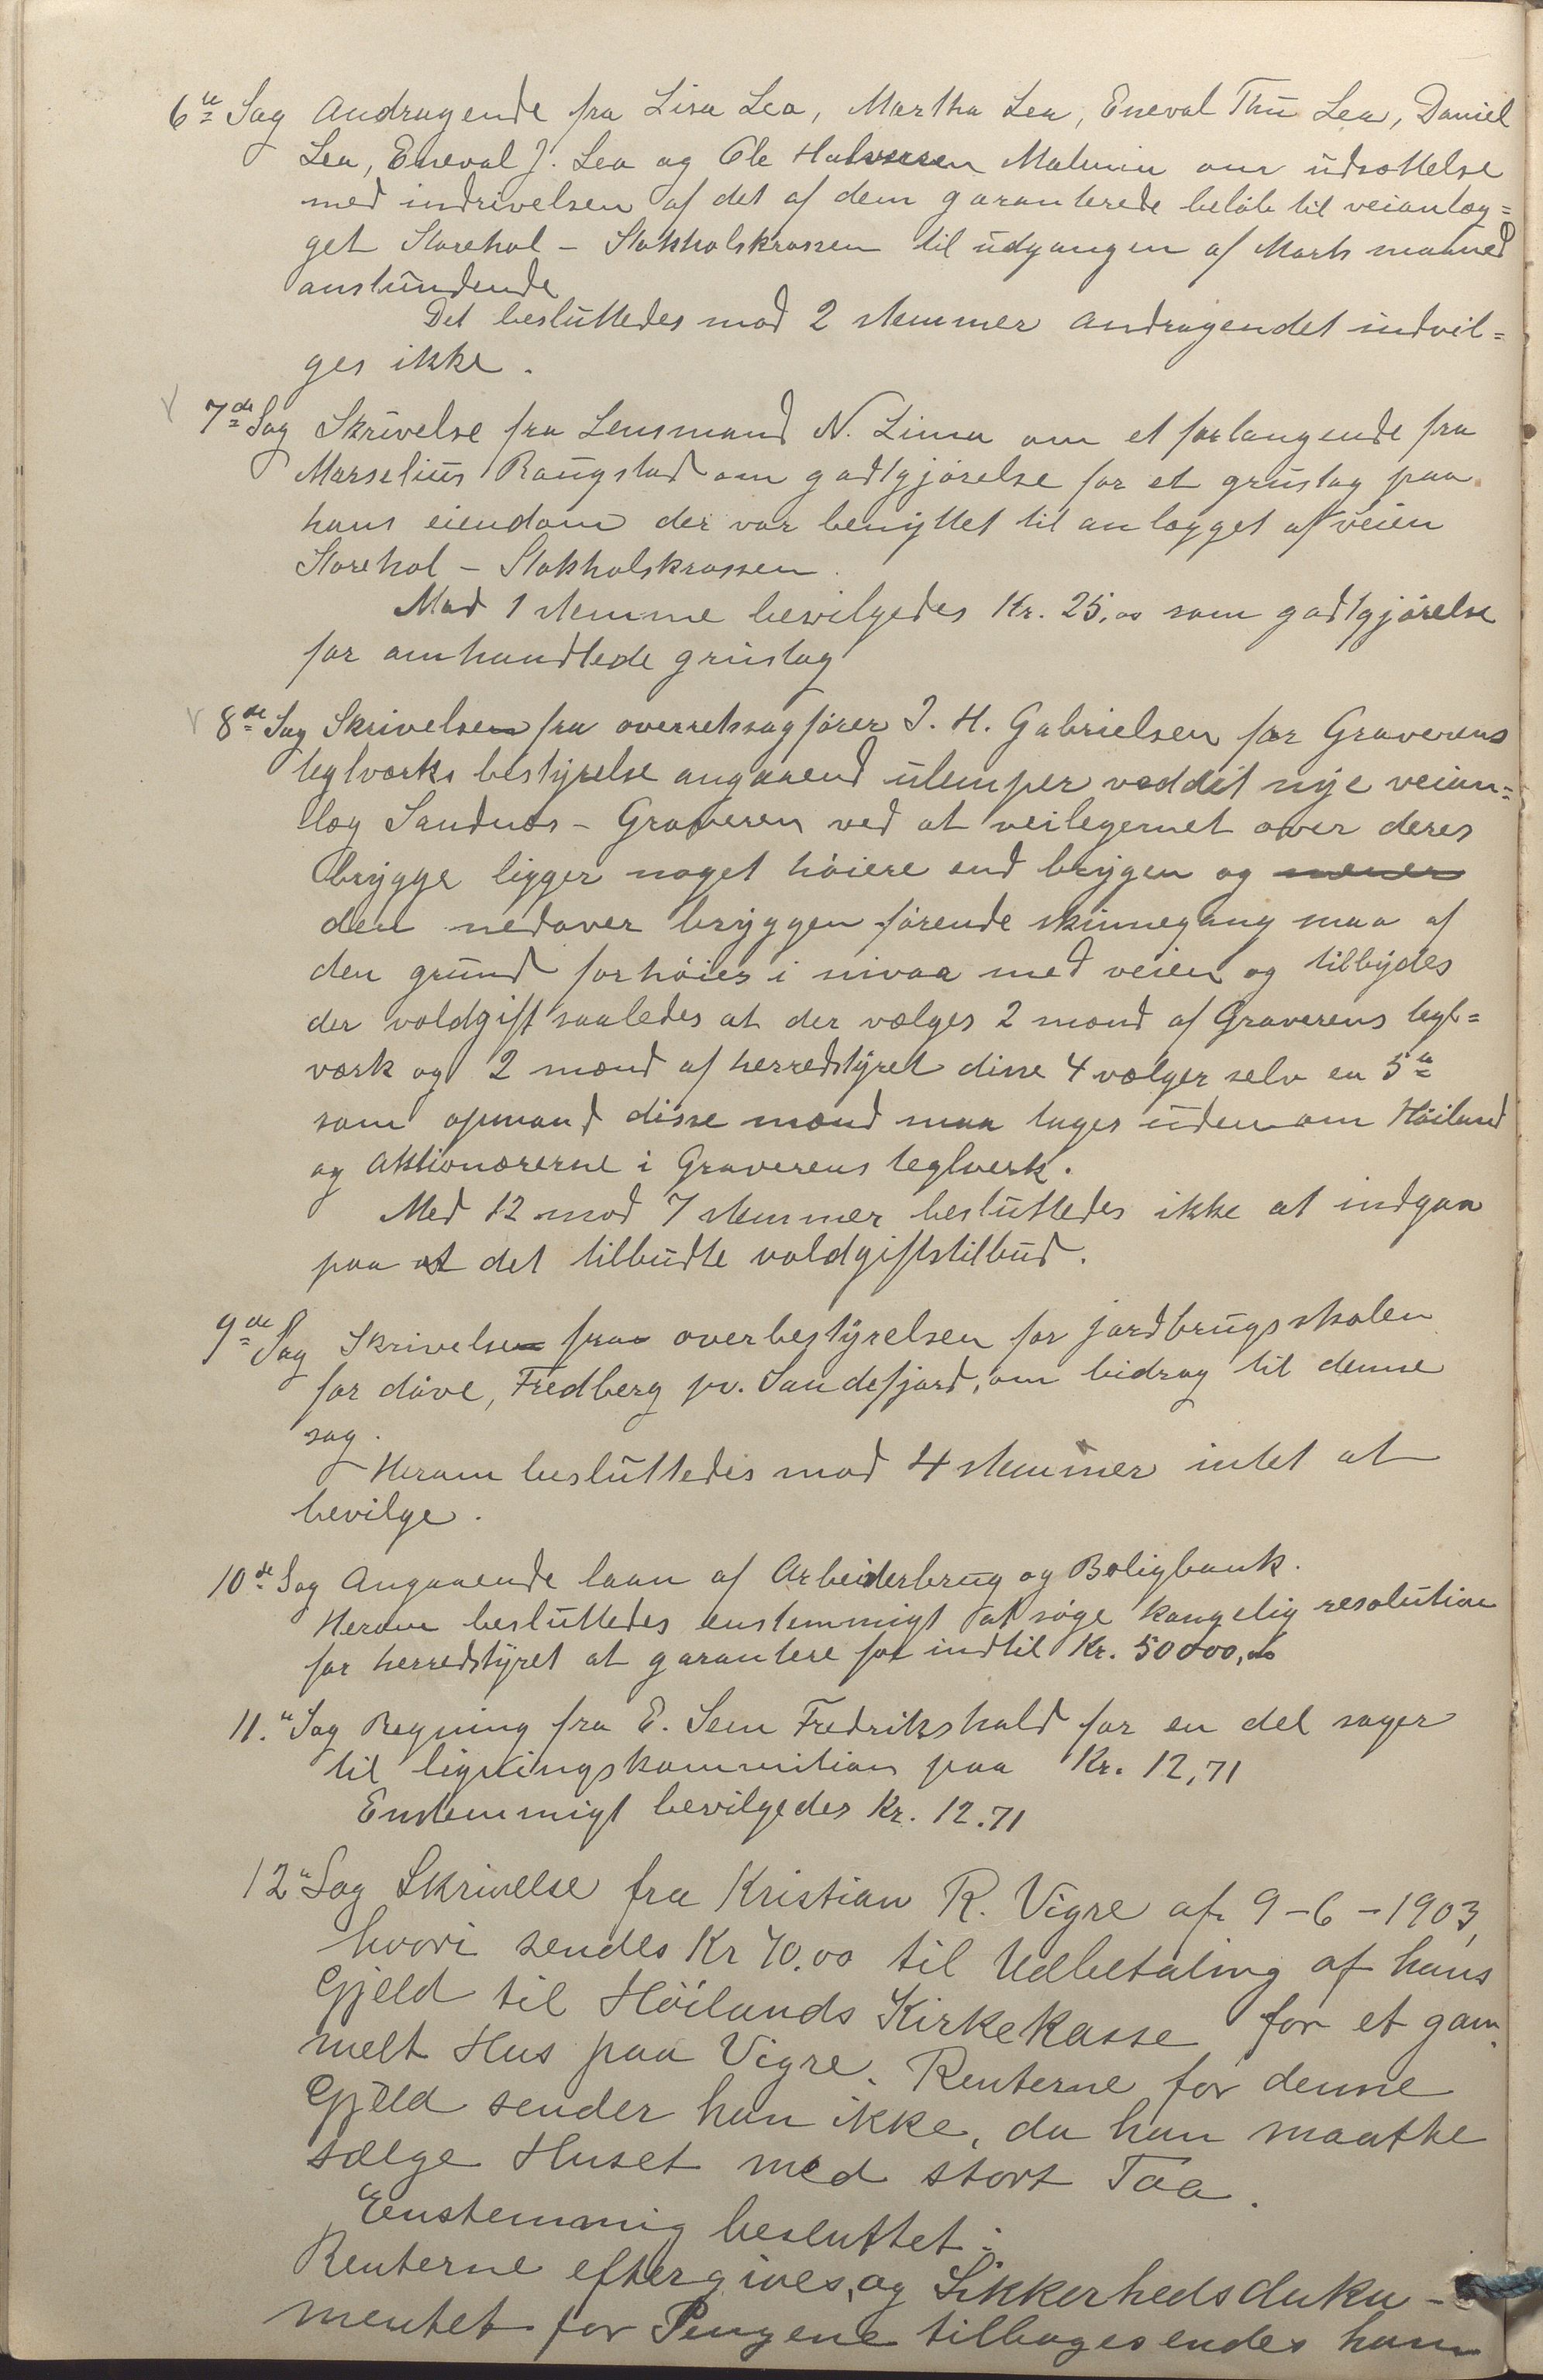 6te Sag Andragende fra Lisa Lea, Martha Lea, Eneval Thu Lea, Daniel
Lea, Eneval J. Lea og Ole Halvorsen Malmin om udsættelse
med indrivelsen af det af dem garanterede beløb til veianlæg=
get Storehol - Stokholskrossen til udgangen af Marts maaned
anstundende
Det besluttedes mod 2 stemmer andragendet indvil=
ges ikke.
7de Sag Skrivelse fra Lensmand N. Lima om et forlangende fra
Marselius Raugstad om godtgjørelse for et grustag paa
hans eiendom der var benyttet til anlægget af veien
Storehol - Stokholskrossen.
Mod 1 stemme bevilgedes Kr. 25,00 som godtgjørelse
for omhandlede grustag
8de Sag Skrivelsen fra overretssagfører J. H. Gabrielsen for Graverens
teglværks bestyrelse angaaend ulemper ved det nye veian=
læg Sandnæs - Graveren ved at veilegemet over deres
brygge ligger noget høiere end brygen og mener
den nedover bryggen førende skinnegang maa af
den grund forhøies i nivaa med veien og tilbydes
der voldgift saaledes at der vælges 2 mænd af Graverens tegl=
værk og 2 mænd af herredstyret disse 4 vælger selv en 5te
som opmand disse mænd maa tages udenom Høiland
og Aktionærerne i Graverens teglverk.
Med 12 mod 7 stemmer besluttedes ikke at indgaa
paa at det tilbudte voldgiftstilbud.
9de Sag Skrivelsen fra overbestyrelsen for jordbrugsskolen
for døve, Fredberg pr. Sandefjord, om bidrag til denne
sag.
Herom besluttedes mod 4 stemmer intet at
bevilge.
10de Sag Angaaende laan af Arbeiderbrug og Boligbank.
Herom besluttedes enstemmigt at søge kongelig resolution
for herredstyret at garantere for indtil Kr. 50000,00
11.te Sag Regning fra E. Sem Fredrikshald for en del sager
til ligningskommition paa Kr. 12,71
Enstemmigt bevilgedes Kr. 12.71
12te Sag Skrivelse fra Kristian R. Vigre af 9-6-1903,
hvori sendes Kr 70.00 til Udbetaling af hans
Gjeld til Höilands Kirkekasse for et gam=
melt Hus paa Vigre. Renterne for denne
Gjeld sender han ikke, da han maatte
sælge Huset med stort Tab.
Enstemmig besluttet:
Renterne eftergives, og Sikkerhedsdoku-
mentet for Pengene tilbagesendes ham